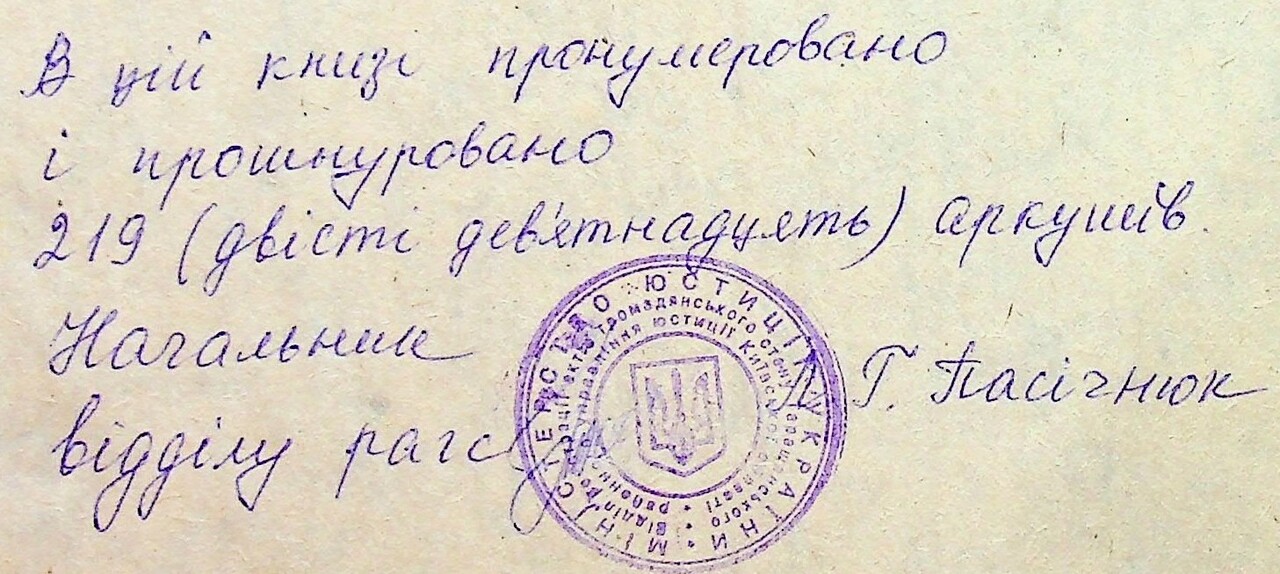 В цій книзі пронумеровано
і прошнуровано
219 (двісті дев'ятнадцять) аркушів.
Начальник
відділу рагсу Г. Пасічнюк
МІНІСТЕРСТВО ЮСТИЦІЇ УКРАЇНИ
Відділ реєстрації актів громадянського стану
районного управління юстиції Київської області